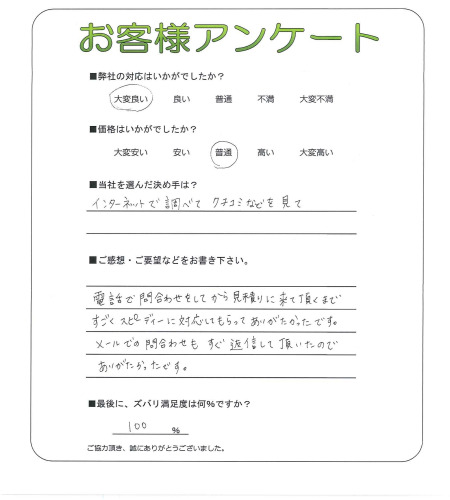 お客様アンケート
■弊社の対応はいかがでしたか?
大変良い 良い 普通 不満 大変不満
■価格はいかがでしたか?
大変安い 安い 普通 高い 大変高い
■当社を選んだ決め手は?
インターネットで調べて クチコミなどを見て
■ご感想・ご要望などをお書き下さい。
電話で問合わせをしてから見積りに来て頂くまで
すごくスピーディーに対応してもらってありがたかったです。
メールでの問合わせもすぐ返信して頂いたので
ありがたかったです。
■最後に、ズバリ満足度は何%ですか?
100 %
ご協力頂き、誠にありがとうございました。